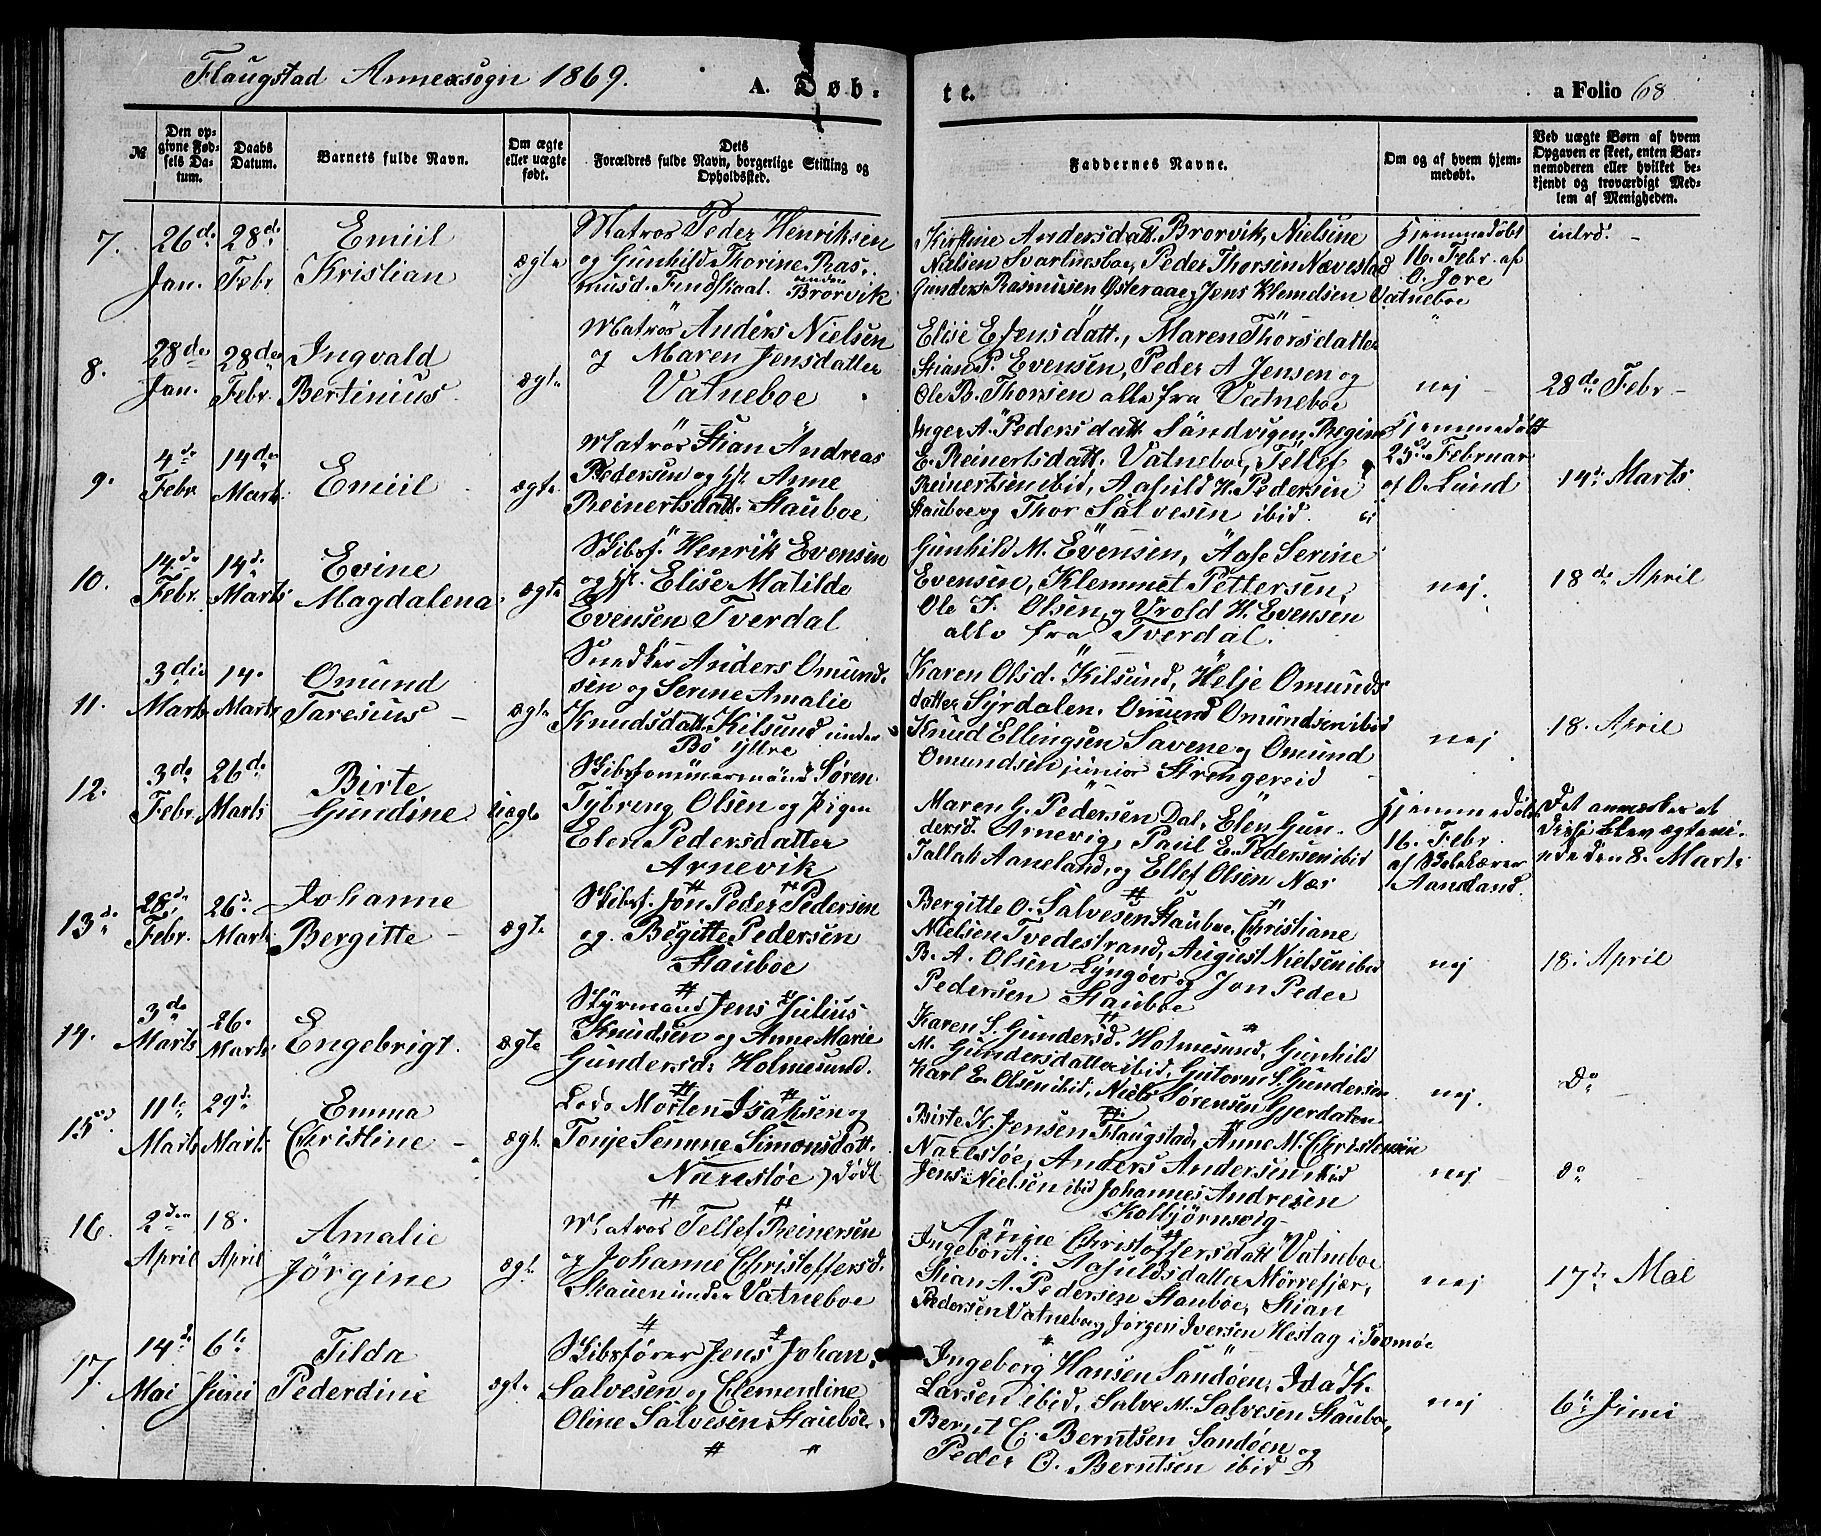 Flaugstad Annexsogn 1869.
A. Døb-
te.
a Folio 68
№
Den op-
givne Fød-
sels Da-
tum.
Daabs
Datum.
Barnets fulde Navn.
Om ægte
eller uægte
født.
Dets
Forældres fulde Navn, borgerlige Stilling og
Opholdssted.
Faddernes Navne.
Om og af hvem hjem-
medøbt.
Ved uægte Børn af hvem
Opgaven er skeet, enten Bar-
nemoderen eller hvilket be-
kjendt og troværdigt Med-
lem af Menigheden.
7. 26de Jan. 28de Febr
Emiil
Kristian
ægte
Matros Peder Henriksen
og Gunhild Thorine Ras-
musd. Findskaal. under
Brorvik
Kirstine Andersdatt. Brorvik, Nielsine
Nielsen Svartnesboe, Peder Thorsen Nævestad
Gunders Rasmusen Østeraae, Jens Klemdsen Vatneboe
Hjemmedøbt
16. Febr. af
O. Jore
intrd. -
8. 28de Jan. 28de Febr.
Ingvald
Bertinius
ægte
Matros Anders Nielsen
og Maren Jensdatter
Vatneboe
Elise E Jensdatt., Maren Thorsdatter
Stian P. Evensen, Peder A Jensen og
Ole B. Thorsen alle fra Vatneboe
nej
28de Febr -
9. 4de Febr 14de Marts
Emiil
ægte
Matros Stian Andreas
Pedersen og Hst. Anne
Reinertsdatt. Stauboe
Inger A. Pedersdatt. Sandvigen, Regine
E. Reinertsdatt. Vatneboe, Tellef
Reinertsen ibid, Aasuld H. Pedersen
Stauboe og Thor Salvesen ibid.
Hjemmedøbt
25de Februar
af O. Lund
14de Marts
10. 14de Febr. 14de Marts
Evine
Magdalena
ægte
Skibsf. Henrik Evensen
og Hst. Elise Matilde
Evensen Tverdal
Gunhild M. Evensen, Aase Serine
Evensen, Klemmet Pettersen,
Ole J. Olsen og Vrold H. Evensen
alle fra Tverdal.
nej.
18de April
11. 3die Marts 14. Marts
Omund
Taresius
ægte
Snedker Anders Omund-
sen og Serine Amalie
Knudsdatt. Kilsund under
Bø ytre
Karen Olsd. Kilsund, Helje Omunds
datter Syrdalen, Omund Omundsen ibid
Knud Ellingsen Savene og Omund
Omundsen junior Strengereid
nej
18. April
12. 3de Febr. 26de Marts
Birte
Gundine
uægte
Skibstømmermand Søren
Tybreng Olsen og Pigen
Elen Pedersdatter
Arnevik
Maren G. Pedersen Dal, Elen Gun-
dersd. Arnevig, Paul E. Pedersen ibid
Tallak Aaneland, og Ellef Olsen Næs
Hjemmedøbt
16. Febr.
af
Aaneland.
Det anmerkes at
disse blev ægtevi-
ede den 8. Marts
13de 28de Febr. 26de Marts
Johanne
Bergitte
ægte
Skibsf. Jon Peder Pedersen
og. Begitte Pedersen
Stauboe
Bergitte O. Salvesen Stauboe, Christiane
Nielsen Tvedestrand, August Nielsen ibid
B. A. Olsen Lyngøer og Jon Peder
Pedersen Stauboe
nej
18. April
14. 3de Marts 26. Marts
Engebrigt.
ægte
Styrmand Jens Julius
Knudsen og Anne Marie
Gundersd. Holmesund.
Karen S. Gundersd. Holmesund, Gunhild
M. Gundersdatter ibid, Gutorm S. Gundersen
Karl E. Olsen ibid, Niels Sørensen Gjerdalen
nej.
Do
15de 11te Marts 29de Marts
Emma
Christine
ægt.
Lods Morten Isaksen og
Tonje Semme Simonsdatt.
Narestøe) død
Birte K. Jensen Flaugstad, Anne M. Christensen
Narestøe, Anders Andersen ibid
Jens Nielsen ibid Johannes Andresen
Kolbjørnsvig
nej
do
16. 2den April 18. April
Amalie
Jørgine
ægt.
Matros Tellef Reinersen
og Johanne Christoffersd.
Stauen under Vatneboe
Christoffersdatt. Vatneboe
Ingebor A. Aasuldsdatter Mørrefjær,
Stian A. Pedersen Stauboe, Stian
Pedersen Vatnebo og Jørgen Iversen Hestag i Tromøe
nej
17de Mai
17. 14de Mai 6te Juni
Tilda
Pederdine
ægte
Skibsfører Jens Johan
Salvesen og Clementine
Oline Salvesen Stauboe.
Ingeborg Hansen Sandøen, Ida K.
Larsen ibid, Salve M. Salvesen Stauboe,
Bernt C. Berntsen Sandøen og
Peder O. Berntsen ibid
nej
6te Juni